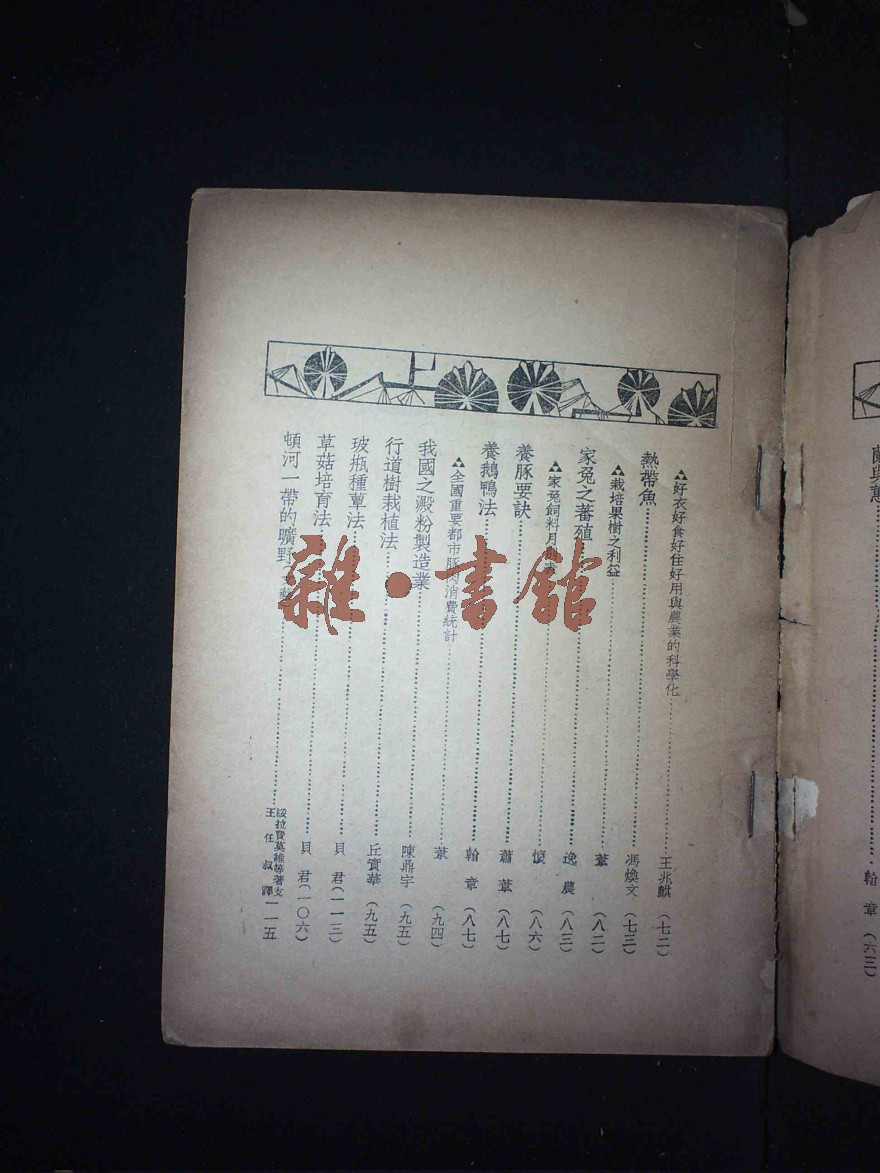 蘭與蕙……翰 章(六三)
好衣好食好住好用與農業的科學化……王兆麒(七二)
熱帶魚……馮煥文(七三)
栽培果樹之利益……葦(八二)
家兔之蕃殖……逸 農(八三)
家兔飼料月別……懷(八六)
養豚要訣……蕭 葦(八七)
養鵝鴨法……翰 章(八七)
全國重要都市豚肉消費統計……葦(九四)
我國之澱粉製造業……陳鼎宇(九五)
行道樹栽植法……丘實華(九五)
玻瓶種蕈法……貝 君(一一三)
草菇培育法……貝 君(一〇六)
頓河一帶的曠野……綏拉費莫維等著支
王任叔譯 一一五
雜·書館